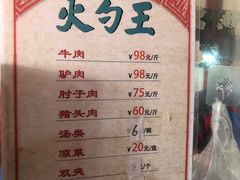 火勺王
牛肉 ¥98元/斤
驴肉 ¥98元/斤
肘子肉 ¥75元/斤
猪头肉 ¥60元/斤
汤类 6/碗
凉菜 ¥20元/盒
双夹 /个